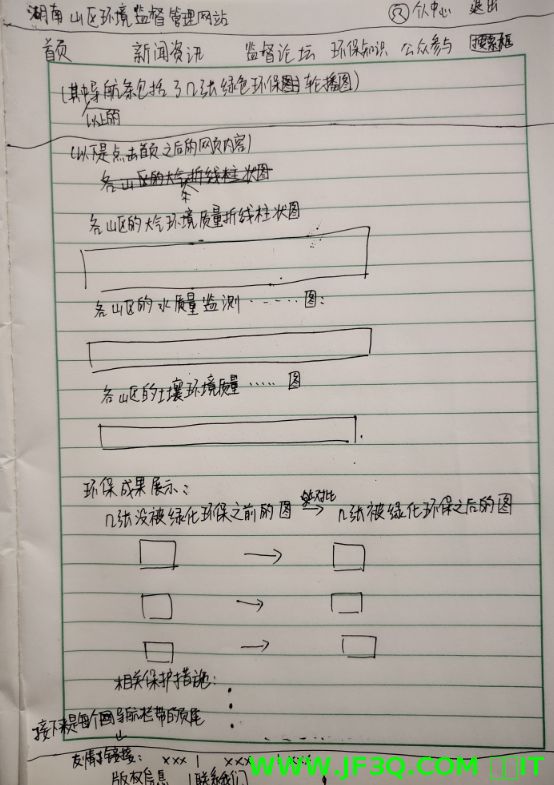 湖南山区环境监督管理网站 个人中心 退出
首页 新闻资讯 监督论坛 环保知识 公众参与 搜索框
(其中导航条包括了几张绿色环保图片轮播图)
以上的
(以下是点击首页之后的网页内容)
各山区的大气折线柱状图
各山区的大气环境质量折线柱状图
各山区的水质量监测······图:
各山区的土壤环境质量·····图
环保成果展示:
几张没被绿化环保之前的图 对比 → 几张被绿化环保之后的图
→
→
→
相关保护措施:
接下来是每个网导航栏带的页尾
友情链接: xxx | xxx |
版权信息 | 联系我们 |
WWW.JF3Q.COM IT